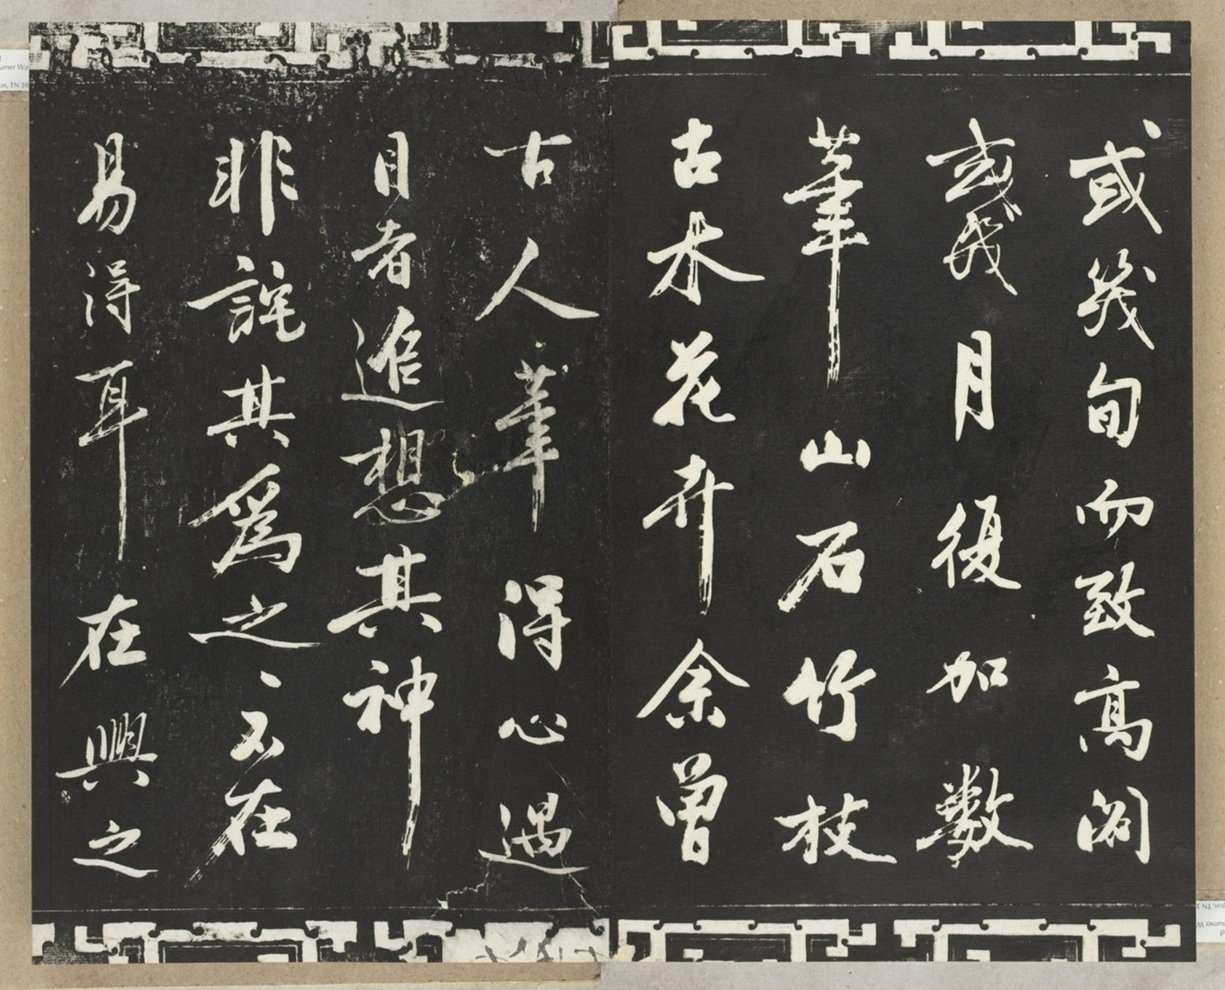 或幾旬而致高閣
或幾月復加數
筆山石竹枝
古木花卉余曾
古人筆得心遇
目者追想其神
非詫其爲之〻不在
易得耳在興之